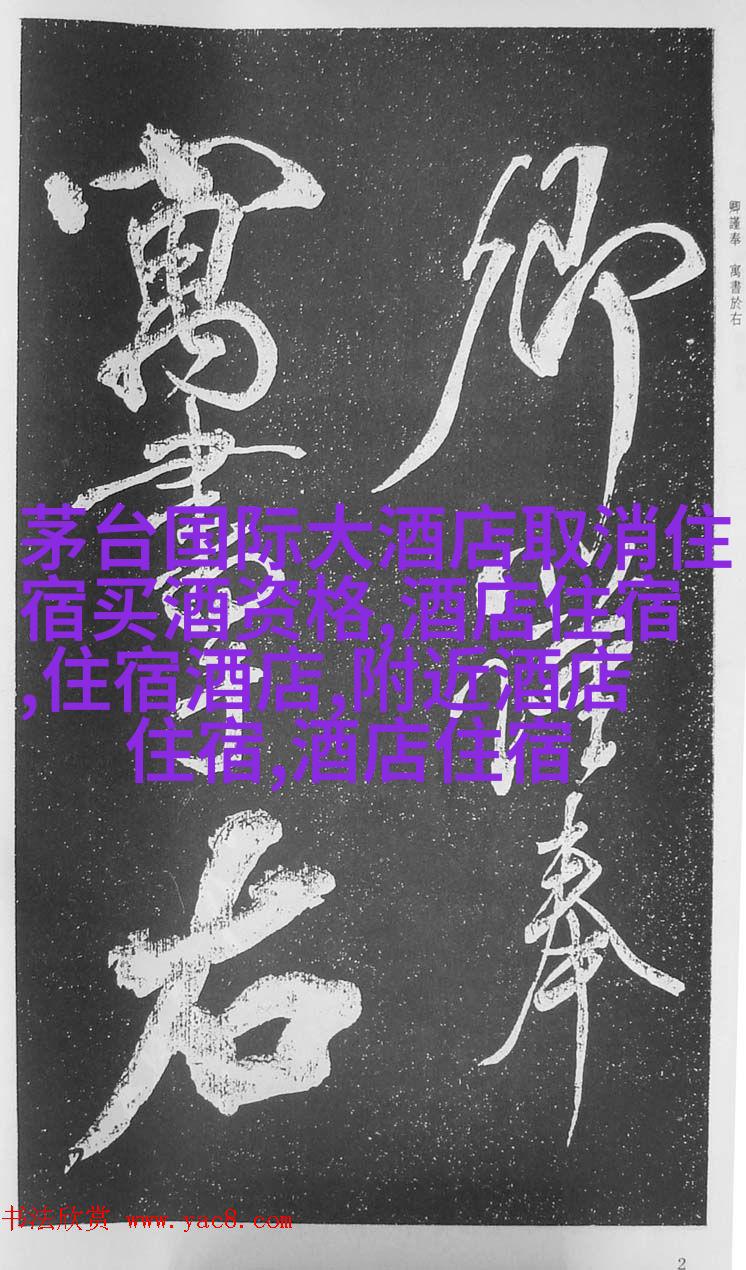 卿謹奉
寓書於右
卿謹奉　寓書於右
茅台国际大酒店取消住
宿买酒资格,酒店住宿
,住宿酒店,附近酒店
住宿,酒店住宿
书法欣赏 www.yac8.com
2